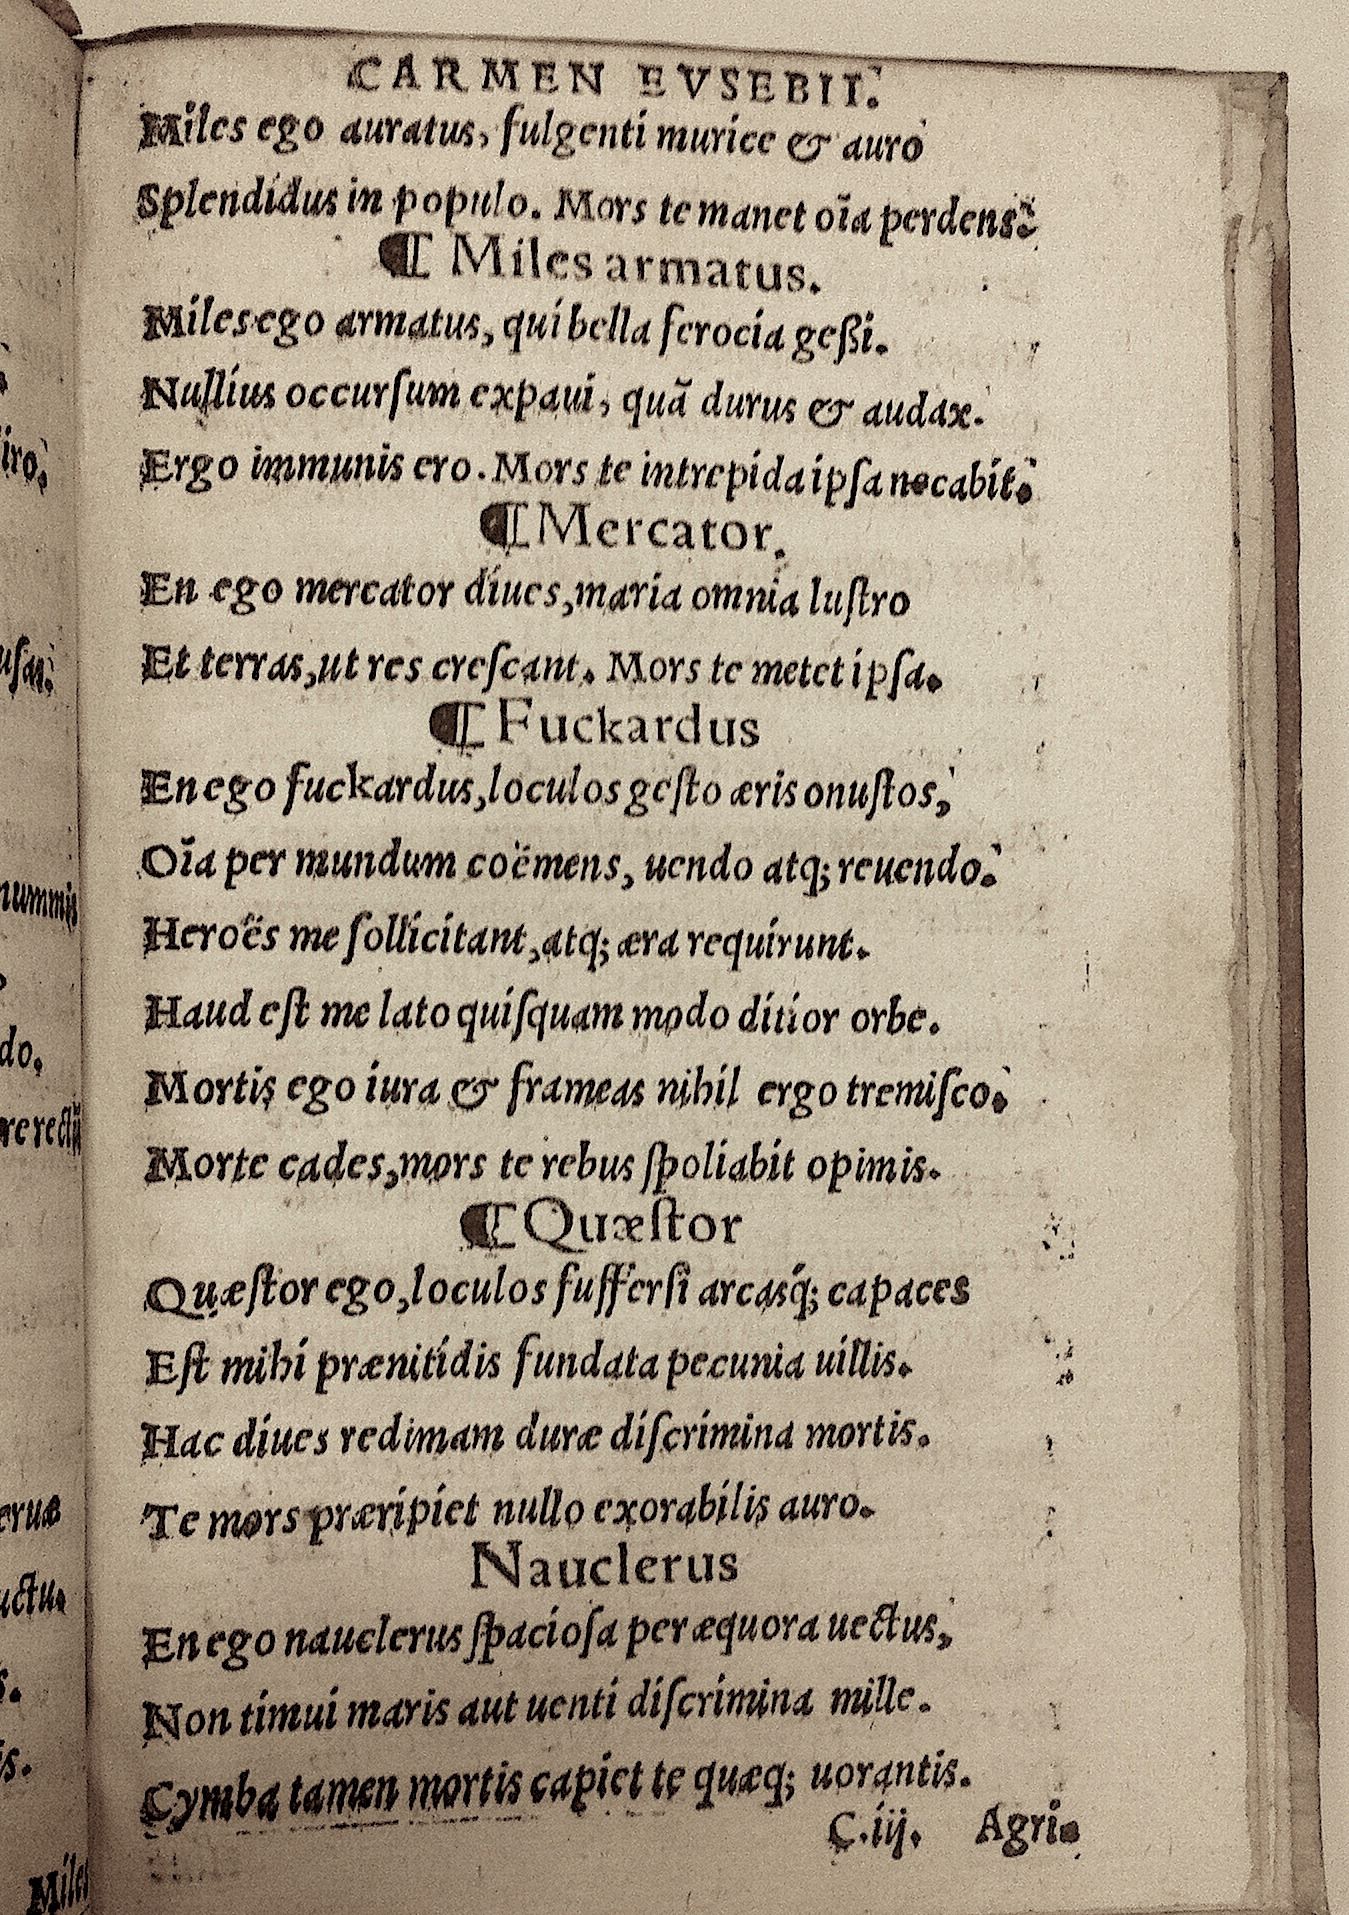 CARMEN EVSEBII.
Miles ego auratus, fulgenti murice & auro
Splendidus in populo. Mors te manet oĩa perdens:
¶ Miles armatus.
Miles ego armatus, qui bella ferocia geßi.
Nullius occurſum expaui, quã durus & audax.
Ergo immunis ero. Mors te intrepida ipſa necabit.
¶ Mercator.
En ego mercator diues, maria omnia luſtro
Et terras, ut res creſcant. Mors te metet ipſa.
¶ Fuckardus
En ego fuckardus, loculos geſto æris onuſtos,
Oĩa per mundum coëmens, uendo atq; reuendo.
Heroës me ſollicitant, atq; æra requirunt.
Haud eſt me lato quiſquam modo ditior orbe.
Mortis ego iura & frameas nihil ergo tremiſco.
Morte cades, mors te rebus ſpoliabit opimis.
¶ Quæſtor
Quæſtor ego, loculos ſufferſi arcasq́; capaces
Eſt mihi prænitidis fundata pecunia uillis.
Hac diues redimam duræ diſcrimina mortis.
Te mors præripiet nullo exorabilis auro.
Nauclerus
En ego nauclerus ſpacioſa per æquora uectus,
Non timui maris aut uenti diſcrimina mille.
Cymba tamen mortis capiet te quæq; uorantis.
C.iij. Agri.
iro.
uſat.
nummis
do.
re rectũ
eruæ
uctu.
s.
is.
Miles